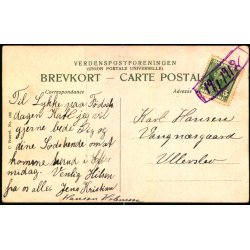 VERDENSPOSTFORENINGEN
(UNION POSTALE UNIVERSELLE)
BREVKORT - CARTE POSTALE
Correspondance
Adresse
Til Lykke paa Føds
dagen Karl jeg vil
gjerne bede Dig og
dine Sødskende om at
komme herud i Efter
middag. Venlig Hilsen
fra os alle. Jens Kristian
Hansen
Karl Hansen
Vangnæsgaard
Ullerslev